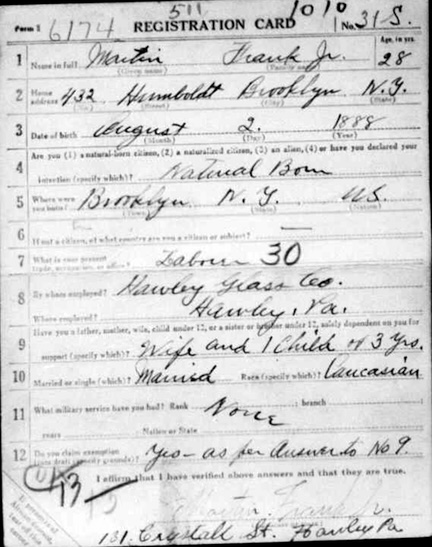 511 1010
Form 1 6174 REGISTRATION CARD No. 31 S.
1 Name in full Martin Frank Jr. Age, in yrs. 28
(Given name) (Family name)
2 Home address 432 Humboldt Brooklyn N.Y.
(No.) (Street) (City) (State)
3 Date of birth August 2. 1888
(Month) (Day) (Year)
Are you (1) a natural-born citizen, (2) a naturalized citizen, (3) an alien, (4) or have you declared your
4 intention (specify which)? Natural Born
5 Where were you born? Brooklyn N.Y. US.
(Town) (State) (Nation)
6 If not a citizen, of what country are you a citizen or subject? —
7 What is your present trade, occupation, or office? Laborer 30
8 By whom employed? Hawley Glass Co.
Where employed? Hawley, Pa.
Have you a father, mother, wife, child under 12, or a sister or brother under 12, solely dependent on you for
9 support (specify which)? Wife and 1 Child of 3 Yrs.
10 Married or single (which)? Married Race (specify which)? Caucasian
11 What military service have you had? Rank None branch
years Nation or State
12 Do you claim exemption from draft (specify grounds)? Yes - as per Answer to No 9.
I affirm that I have verified above answers and that they are true.
13
15
Martin Frank Jr.
131 Crystall St. Hawley Pa